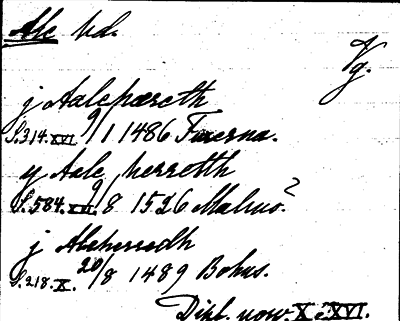 Ale hd.
Vg.
j Aalehæreth
S.314.XVI. 9/1 1486 Faxerna.
y Aale herretth
S.584.XVI. 9/8 1526 Malmö?
j Aleherredh
S.218.X. 20/8 1489 Bohus.
Dipl. norv. X o. XVI.